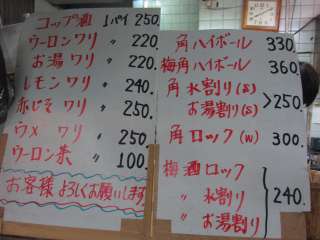 コップ酒 1パイ 250.
ウーロンワリ 〃 220.
お湯ワリ 〃 220.
レモンワリ 〃 240.
赤じそワリ 〃 250.
ウメワリ 〃 250
ウーロン茶 〃 100.
お客様よろしくお願いします
角ハイボール 330.
梅角ハイボール 360.
角水割り(S)
お湯割り(S) >250.
角ロック(W) 300.
梅酒ロック
〃 水割り 240.
〃 お湯割り